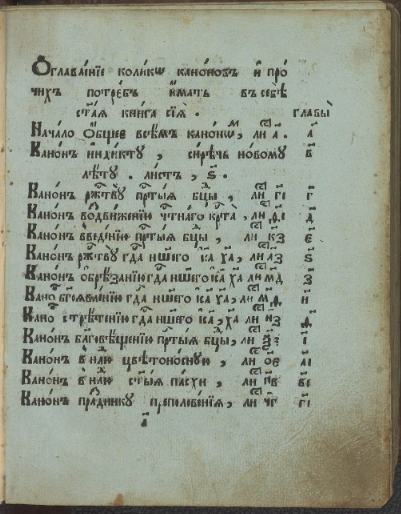 Ѻглавле́нїе коли́кѡ кано́новъ и҆ про́
чихъ потре́бъ и҆мать въ себѣ̀
ст҃а́ѧ кни́га сїѧ̀ . главы̀
Нача́ло Ѻ҆́бщее всѣ̑мъ кано́нѡⷨ , ли а҃ . а҃
Кано́нъ и҆нди́кту , си́рѣчь но́вому в҃
лѣ́ту . ли́стъ , ѕ҃ .
Кано́нъ рж҃тву̀ прⷭ҇ты́ѧ бц҃ы , ли гі҃ г҃
Кано́нъ воздви́женїю чⷭ҇тна́гѡ крⷭ҇та̀ , ли д҃
Кано́нъ введе́нїю прⷭ҇ты́ѧ бц҃ы , ли кз҃ є҃
Кано́нъ рж҃тву̀ гдⷭ҇а на́шегѡ і҆с҃а хрⷭ҇та̀ , ли лз҃ ѕ҃
Кано́нъ ѻ҆брѣ́занїю гдⷭ҇а на́шегѡ і҆с҃а хрⷭ҇та̀ ли мд҃ з҃
Кано́ бг҃оѧвле́нїю гдⷭ҇а на́шегѡ і҆с҃а хрⷭ҇та̀ , ли и҃
Кано́ стрѣ́тенїю гдⷭ҇а на́шегѡ і҆с҃а , хрⷭ҇та̀ ли нз҃ ѳ҃
Кано́нъ бл҃говѣ́щенїю прⷭ҇ты́ѧ бц҃ы , ли і҃
Кано́нъ в̾ нⷣлю цвѣтоно́сную , ли ѻе҃ аі҃
Кано́нъ в̾ нⷣлю ст҃ы́ѧ па́схи , ли пв҃ ві҃
Кано́нъ пра́зднику преполове́нїѧ , ли чг҃ гі҃
а҃